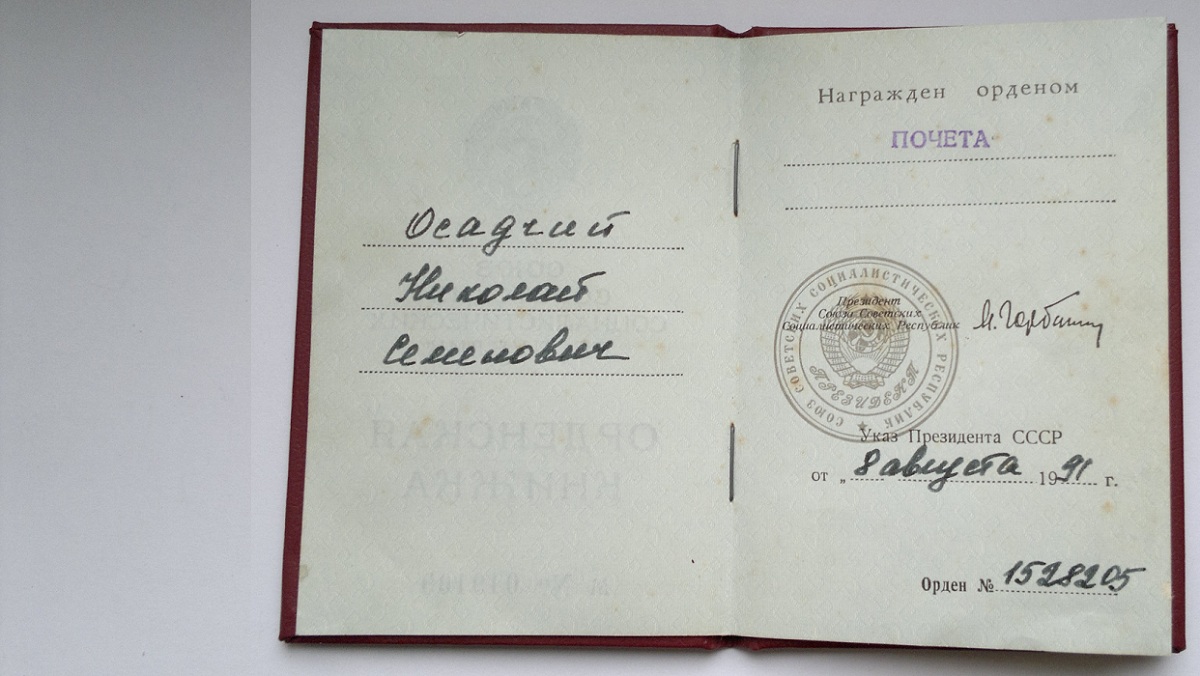 Осадчий
Николай
Семенович
Награжден орденом
ПОЧЕТА
СОЮЗ СОВЕТСКИХ СОЦИАЛИСТИЧЕСКИХ РЕСПУБЛИК
Президент
Союза Советских
Социалистических Республик
М. Горбачев
ПРЕЗИДЕНТ
Указ Президента СССР
от „ 8 августа 1991 г.
Орден № 1528205
СОЮЗ
ОРДЕНСКАЯ
КНИЖКА